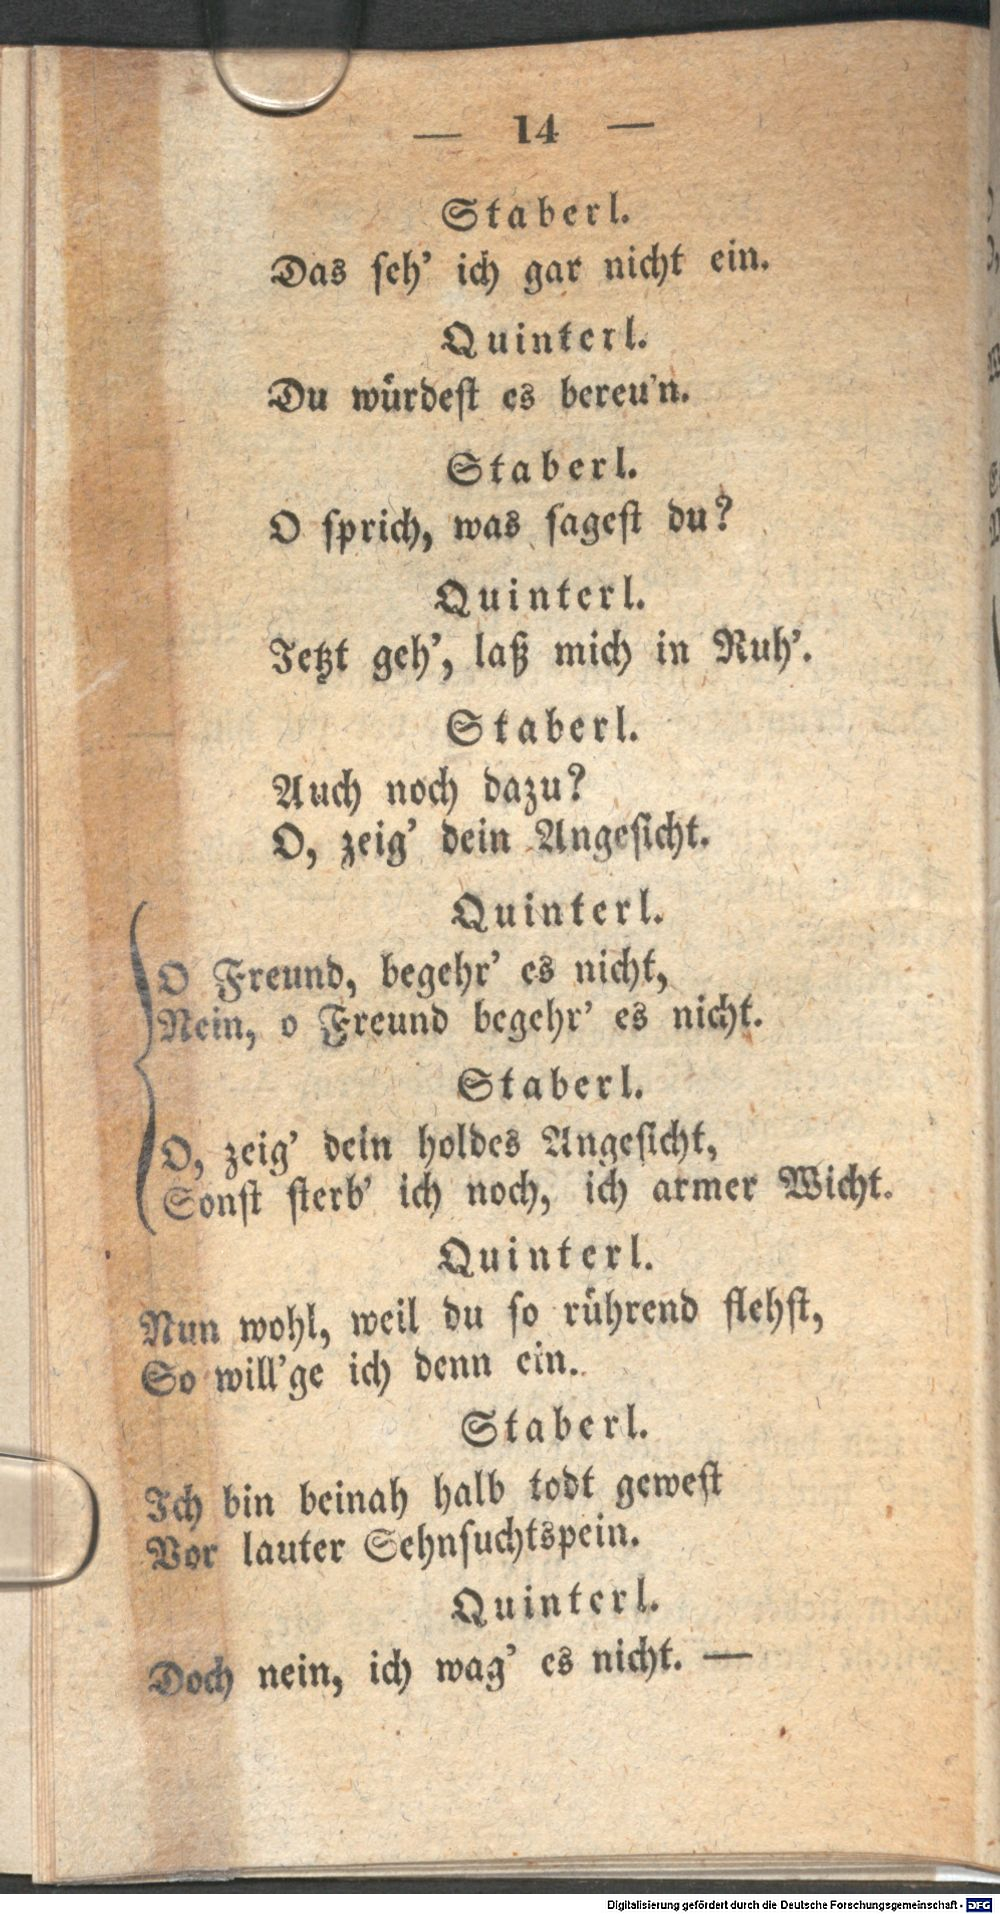 — 14 —
Staberl.
Das seh' ich gar nicht ein.
Quinterl.
Du würdest es bereu'n.
Staberl.
O sprich, was sagest du?
Quinterl.
Jetzt geh', laß mich in Ruh'.
Staberl.
Auch noch dazu?
O, zeig' dein Angesicht.
Quinterl.
O Freund, begehr' es nicht,
Nein, o Freund begehr' es nicht.
Staberl.
O, zeig' dein holdes Angesicht,
Sonst sterb' ich noch, ich armer Wicht.
Quinterl.
Nun wohl, weil du so rührend flehst,
So will'ge ich denn ein.
Staberl.
Ich bin beinah halb todt gewest
Vor lauter Sehnsuchtspein.
Quinterl.
Doch nein, ich wag' es nicht. —
Digitalisierung gefördert durch die Deutsche Forschungsgemeinschaft - DFG